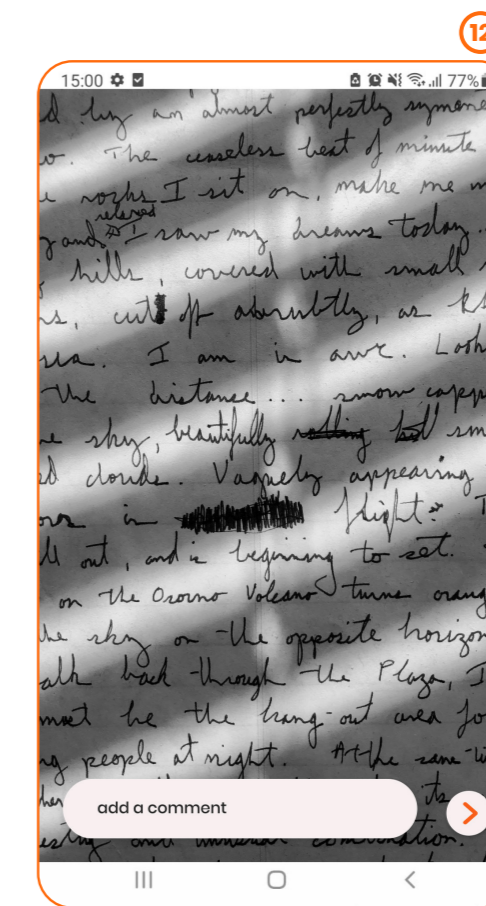 12
15:00 77%
d by an almost perfectly symme
w. The ceaseless beat of minute
e rocks I sit on, make me
relaxed
y and I saw my dreams today.
hills, covered with small
s, cut off abrubtly, as
sea. I am in awe. Look
the distance... snow capp
e sky, beautifully
ed clouds. Vaguely appearing
in flight. T
ll out, and is beginning to set.
on the Osorno Volcano turns orang
he sky on the opposite horizon
alk back through the Plaza, I
must be the hang-out area fo
ng people at night. At the same ti
add a comment its
esting and unusual combination.